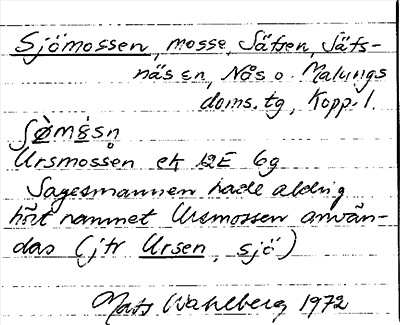 Sjömossen, mosse, Säfsen, Säfs-
näs sn, Nås o. Malungs
doms. tg, Kopp. l.
Ursmossen ek 12E 6g
Sagesmannen hade aldrig
hört namnet Ursmossen använ-
das (jfr Ursen, sjö)
Mats Wahlberg 1972